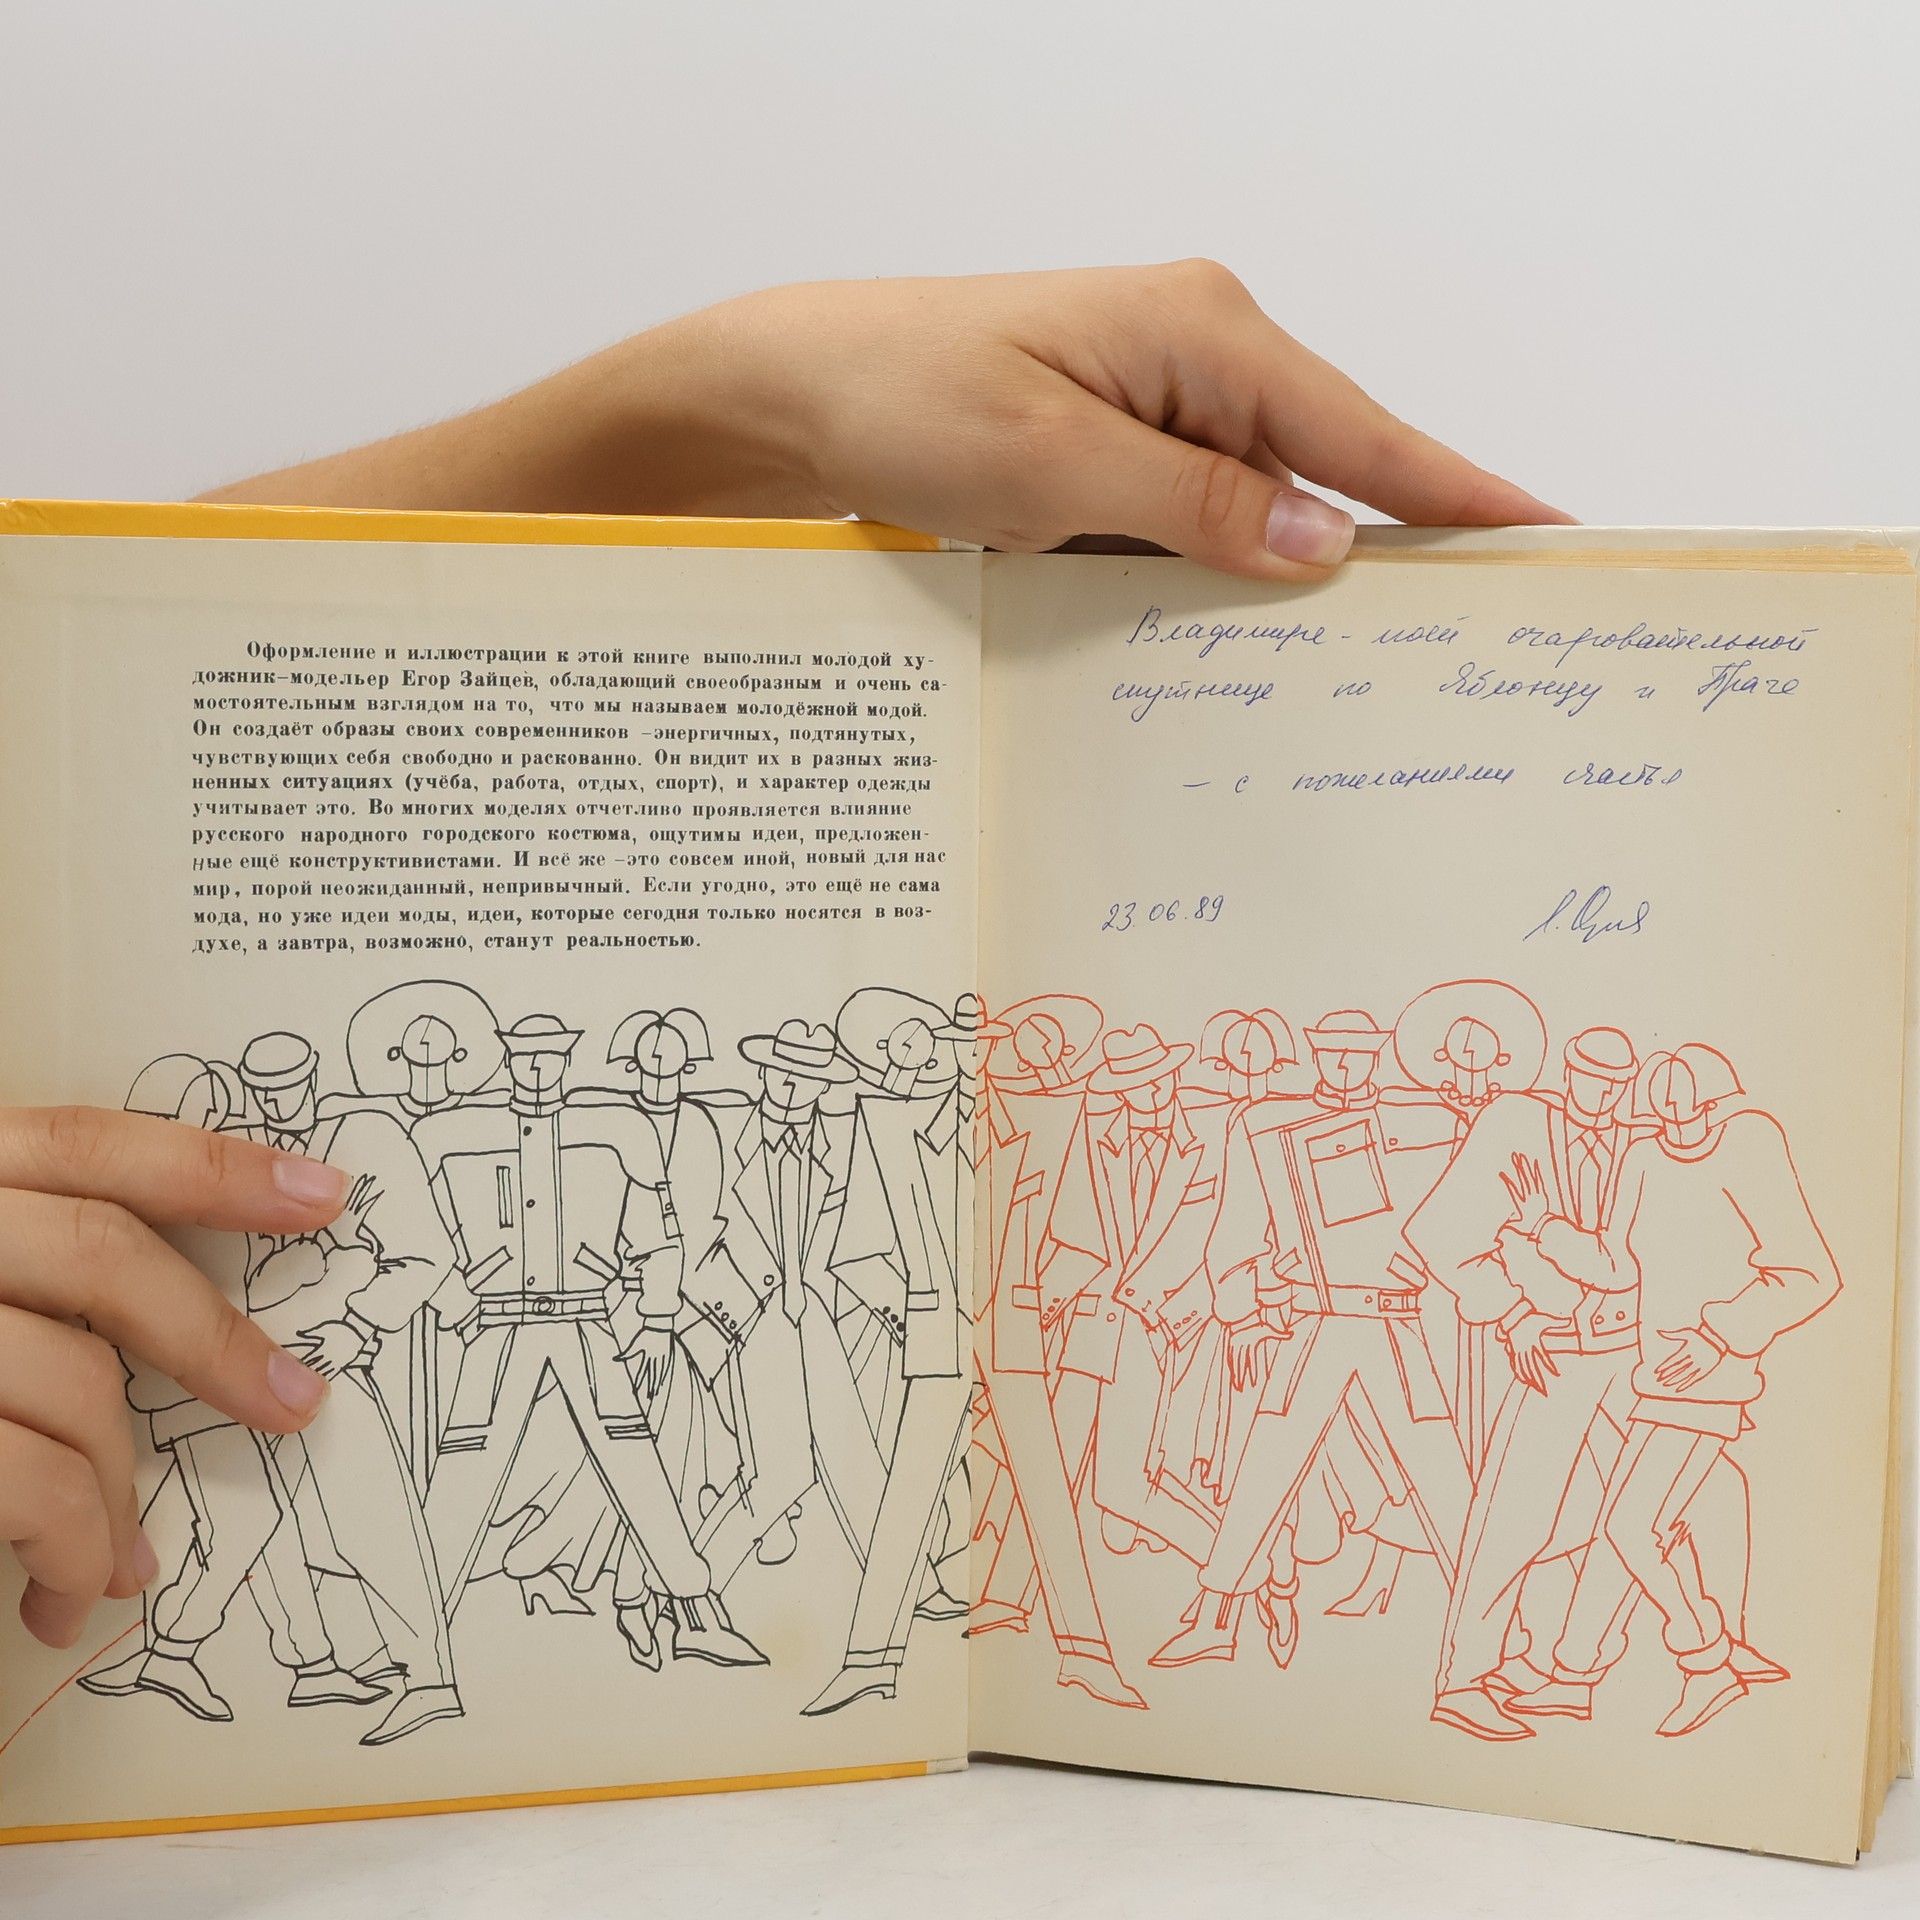 Оформление и иллюстрации к этой книге выполнил молодой ху-
дожник-модельер Егор Зайцев, обладающий своеобразным и очень са-
мостоятельным взглядом на то, что мы называем молодёжной модой.
Он создаёт образы своих современников -энергичных, подтянутых,
чувствующих себя свободно и раскованно. Он видит их в разных жиз-
ненных ситуациях (учёба, работа, отдых, спорт), и характер одежды
учитывает это. Во многих моделях отчетливо проявляется влияние
русского народного городского костюма, ощутимы идеи, предложен-
ные ещё конструктивистами. И всё же -это совсем иной, новый для нас
мир, порой неожиданный, непривычный. Если угодно, это ещё не сама
мода, но уже идеи моды, идеи, которые сегодня только носятся в воз-
духе, а завтра, возможно, станут реальностью.
Владимире - моей очаровательной
спутнице по Яблонцу и Праге
- с пожеланиями счастья
23.06.89